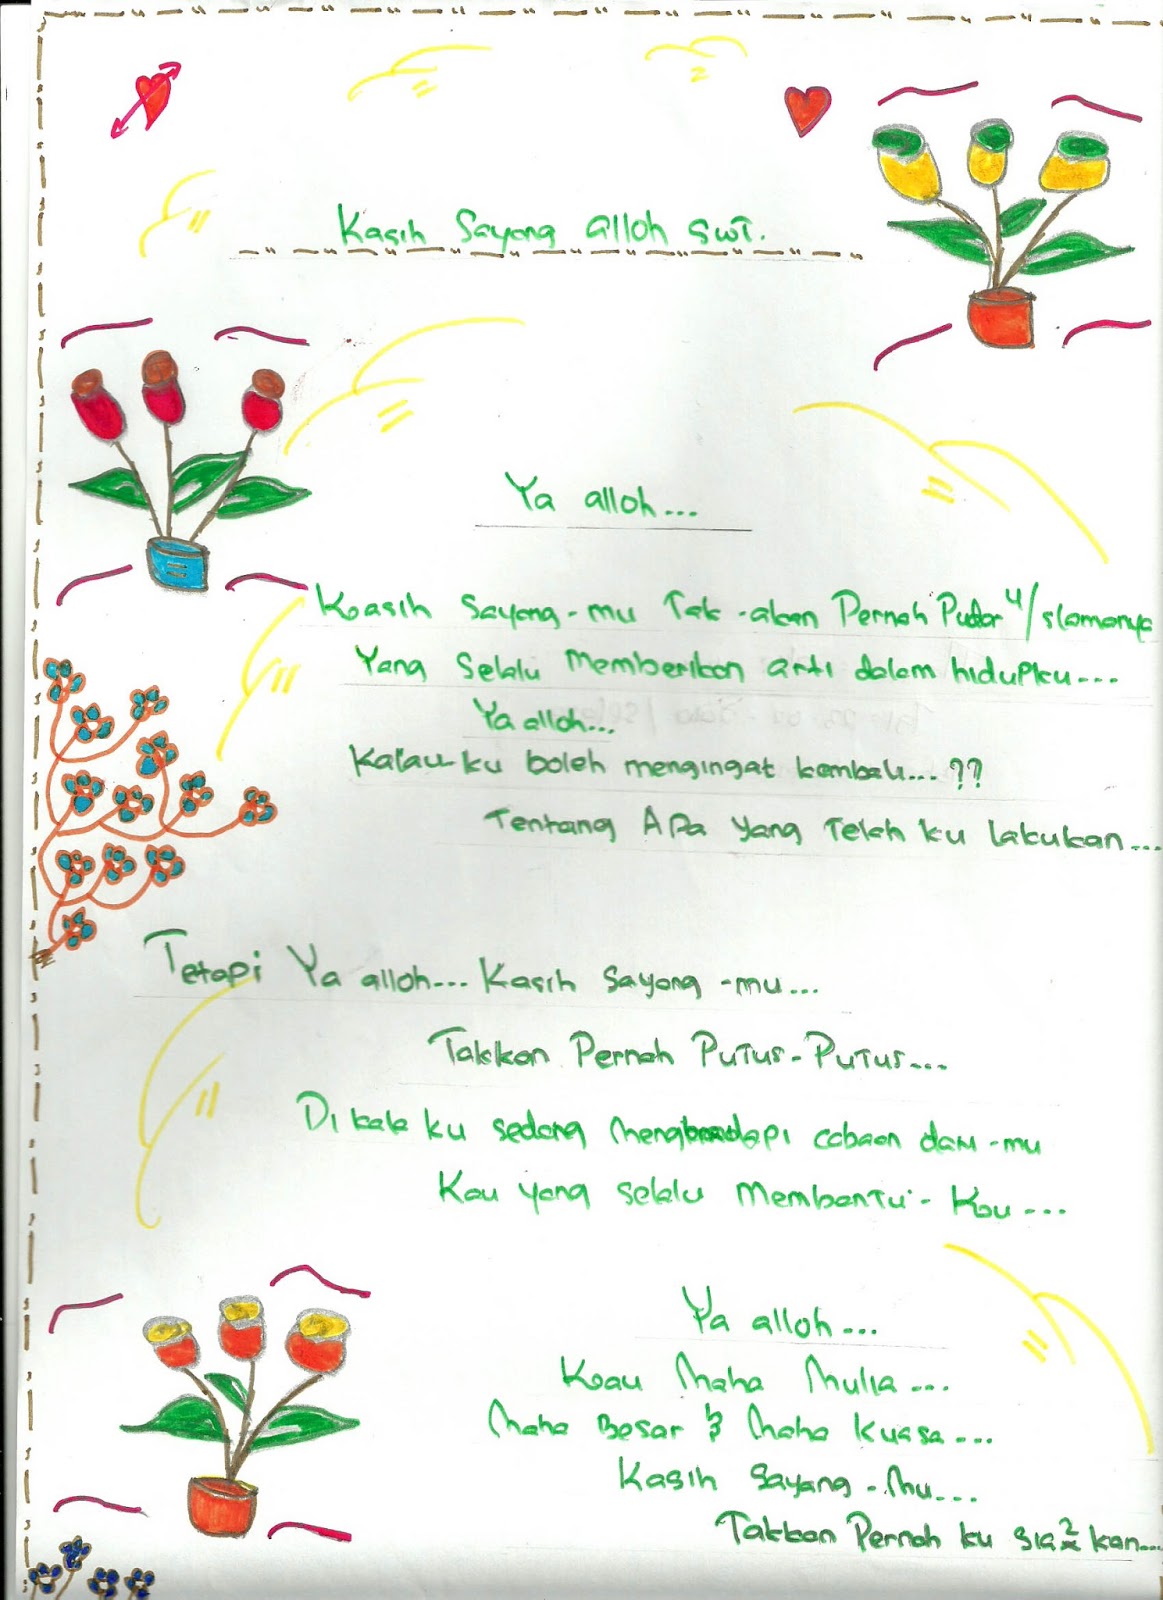 Kasih Sayang alloh swt.
Ya alloh...
Kasih Sayang-mu Tak-akan Pernah Pudar u/ slamanya
Yang Selalu Memberikan arti dalam hidupku...
Ya alloh...
Kalau ku boleh mengingat kembali...??
Tentang Apa yang Telah ku lakukan...
Tetapi Ya alloh... Kasih Sayang -mu...
Takkan Pernah Putus-Putus...
Di kala ku sedang Menghadapi cobaan dari-mu
Kau yang selalu Membantu- Kau...
Ya alloh...
Kau Maha Mulia...
Maha Besar & Maha Kuasa...
Kasih Sayang-Mu...
Takkan Pernah ku sia² kan...